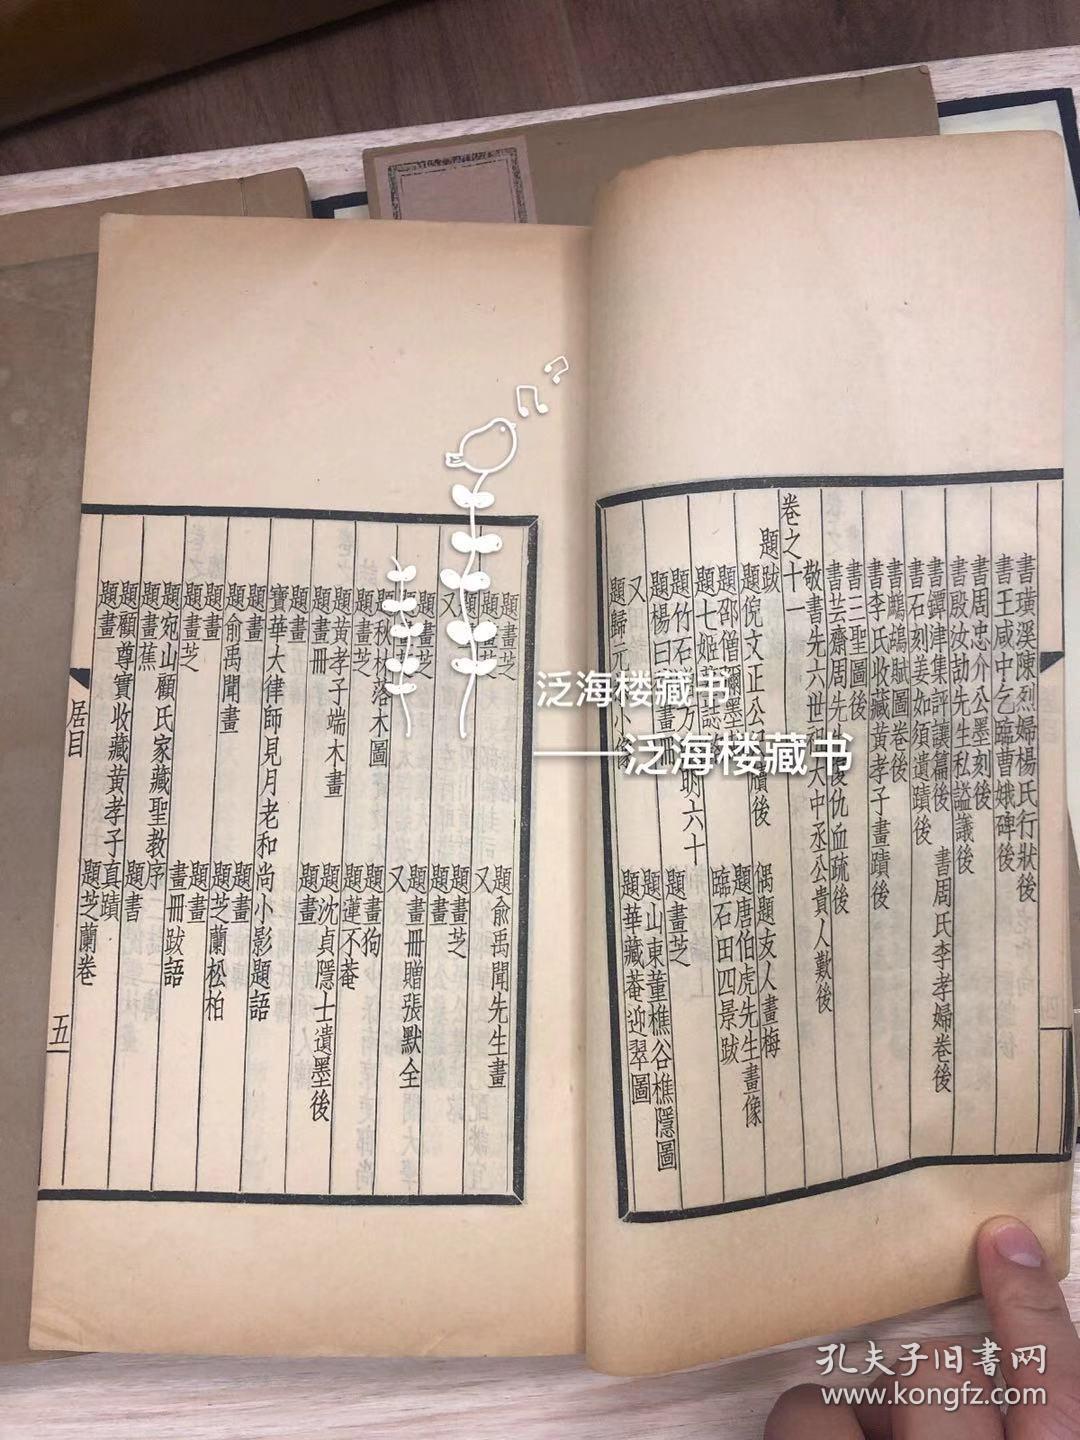 書璜溪陳烈婦楊氏行狀後
書王咸中乞臨曹娥碑後
書周忠介公墨刻後
書殷汝劼先生私謚議後
書鐔津集評讓篇後 書周氏李孝婦卷後
書石刻姜如須遺蹟後
書鷓鴣賦圖卷後
書李氏收藏黃孝子畫蹟後
書三聖圖後
書芸齋周先 後仇血疏後
敬書先六世祖大中丞公貴人歎後
卷之十一
題跋
題倪文正公 牘後 偶題友人畫梅
題邵僧彌墨 題唐伯虎先生畫像
題七姬 誌 臨石田四景跋
題竹石 方 明六十
題楊曰 畫冊 題畫芝
又 題山東董樵谷樵隱圖
題歸元 小像 題華藏菴迎翠圖
題畫芝 題俞禹聞先生畫
題畫芝 又
又 題畫芝
題畫芝 題畫
題 畫冊贈張默全
題秋林落木圖 又
題畫芝 題狗
題黃孝子端木畫 題蓮不菴
題畫冊 題沈貞隱士遺墨後
題畫 題畫
寶華大律師見月老和尚小影題語
題畫 題畫
題俞禹聞畫 題芝蘭松柏
題畫 題畫
題畫芝 畫冊跋語
題宛山顧氏家藏聖教序
題畫蕉 題書
題顧尊實收藏黃孝子真蹟
題畫 題芝蘭卷
居目
五
泛海楼藏书
——泛海楼藏书
孔夫子旧書网
www.kongfz.com